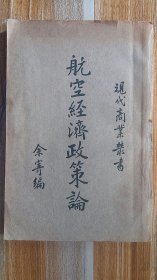 現代商業叢書
航空經濟政策論
余寄編